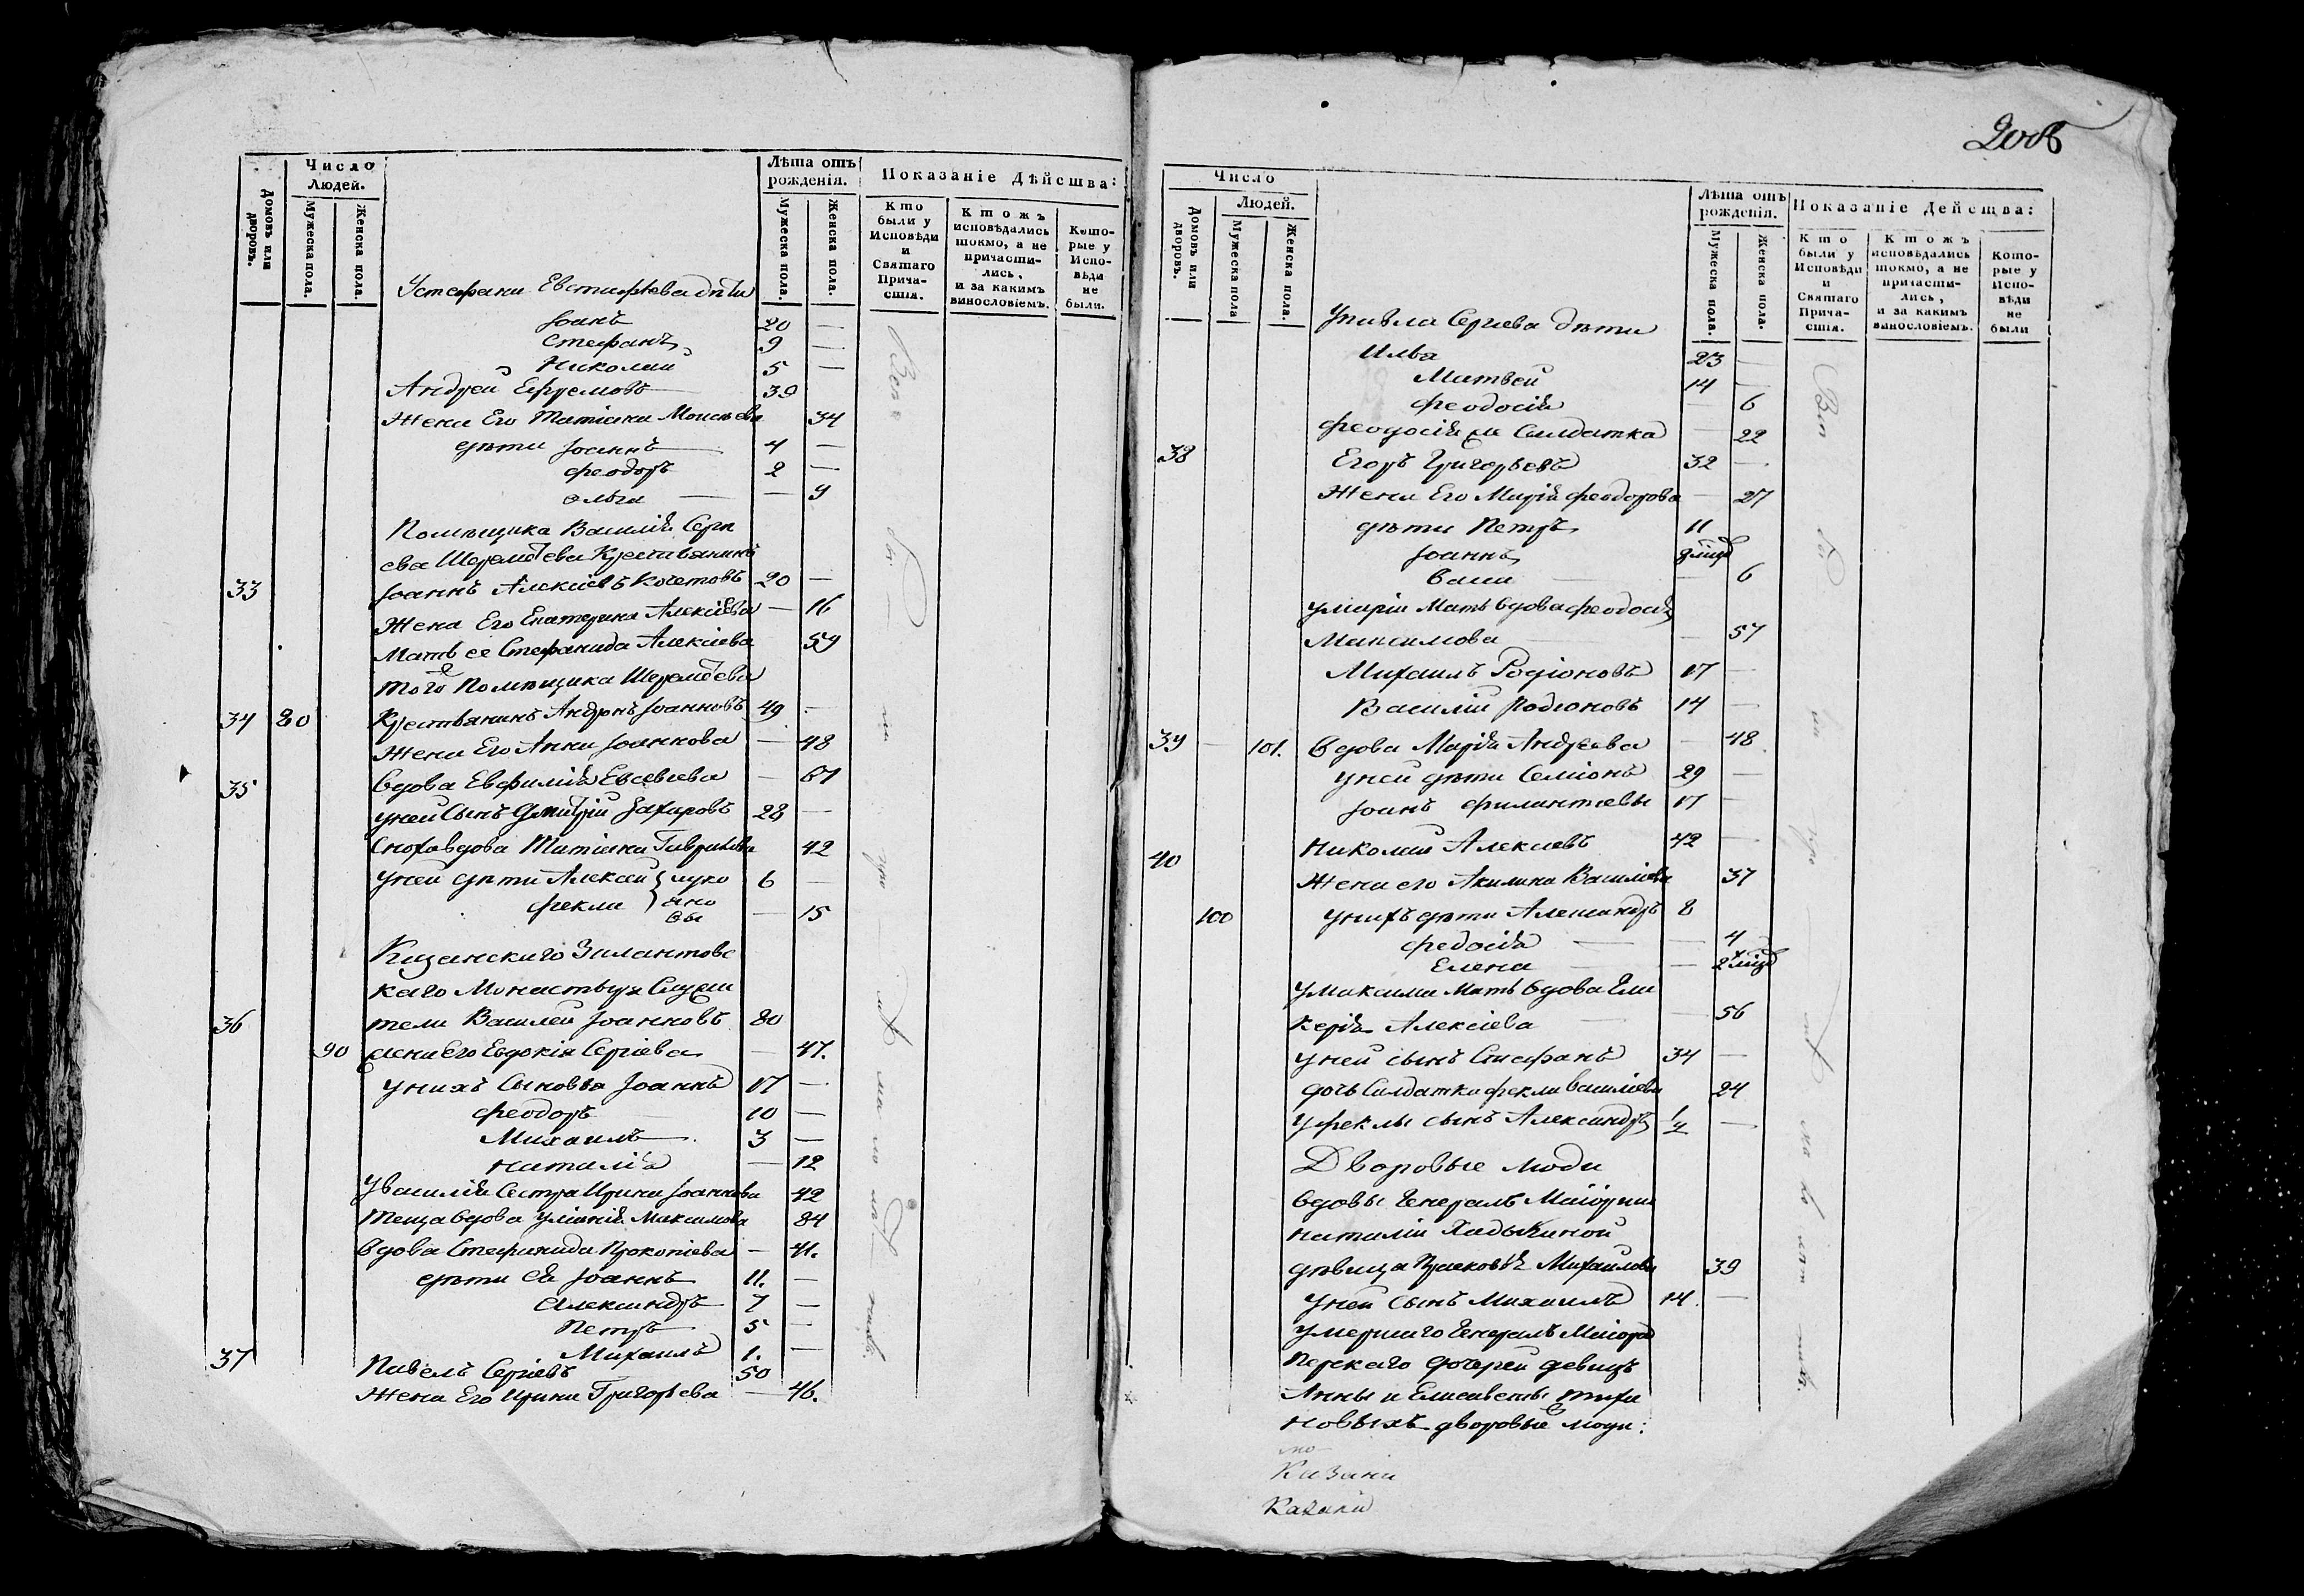 Число
Людей.
Домовъ или дворовъ.
Мужеска пола.
Женска пола.
Лѣта отъ рожденія.
Мужеска пола.
Женска пола.
Показаніе Дѣйства:
Кто были у Исповѣди и Святаго Прича-стія.
Ктожъ исповѣдались токмо, а не причасти-лись, и за какимъ винословіемъ.
Кото-рые у Испо-вѣди не были.
У Стефана Евстифѣева дѣти
Іоанъ 20 —
Стефанъ 9 —
Николай 5 —
Андрей Ефремовъ 39
Жена Его Татіана Моисѣева 34
дѣти Іоаннъ 4 —
Феодоръ 2 —
Ольга — 9
Помѣщика Василія Серге
ева Шереметева Крестьянинъ
33 Іоаннъ Алексіевъ Кочетовъ 20 —
Жена Его Екатерина Алексіева — 16
Мать ее Стефанида Алексіева 59
того Помѣщика Шереметева
34 80 Крестьянинъ Андронъ Іоанновъ 49 —
Жена Его Анна Іоаннова — 48
35 Вдова Евфимія Евсевіева — 67
у ней Сынъ Дмитрій Захаровъ 28 —
Сноха вдова Татіана Гаврилова 42
у ней дѣти Алексей 6 —
Фекла — 15
Казанскаго Зилантовс
каго Монастыря Служи
36 тели Василей Іоанновъ 80
90 жена Его Евдокія Сергіева — 47.
у нихъ Сыновья Іоаннъ 17 —
Феодоръ 10 —
Михаилъ 3 —
Наталія — 12
У василія Сестра Ирина Іоаннова 42
Теща вдова Уліанія Максимова 84
Вдова Стефанида Прокопіева — 41.
дѣти ея Іоаннъ 11. —
Александръ 7 —
Петръ 5 —
Михаилъ 1. —
37 Павелъ Сергіевъ 50
Жена Его Ирина Григорьева — 46.
Число
Людей.
Домовъ или дворовъ.
Мужеска пола
Женска пола.
Лѣта отъ рожденія.
Мужеска пола.
Женска пола.
Показаніе Дейсства:
Кто были у Исповѣди и Святаго Прича-стія.
Ктожъ исповѣдались токмо, а не причасти-лись, и за какимъ винословіемъ.
Кото-рые у Испо-вѣди не были
У павла Сергіева дѣти
Илья 23 —
Матвей 14 —
Феодосія — 6
Феодосія Салдатка — 22
38 Егоръ Григорьевъ 32 —
Жена Его Марія Феодорова — 27
дѣти Петръ 11
Іоаннъ
— 6
у маріи Мать вдова Феодосія
Максимова — 57
Михаилъ Родіоновъ 17 —
Василій Родіоновъ 14 —
39 — 101. Вдова Марія Андреева — 48
у ней дѣти Семіонъ 29 —
Іоанъ Филантьевы 17 —
40 Николай Алексіевъ 42 —
Жена его Акилина Василіева 37
100 у нихъ дѣти Александръ 8
Федосія — 4
Елена —
у максима Мать вдова Гли
керія Алексіева — 56
у ней сынъ Стефанъ 34 —
дочь Салдатка Фекла Василіева 24
у Феклы сынъ Александръ —
Дворовые люди
вдовы Генералъ Маіорши
Наталіи
дѣвица Прасковья Михаилова 39
у ней сынъ Михаилъ 14. —
умершаго Генералъ Маіора
дочерей девицъ
Анны и Елисаветы
новыхъ дворовые люди:
Казани
Казани